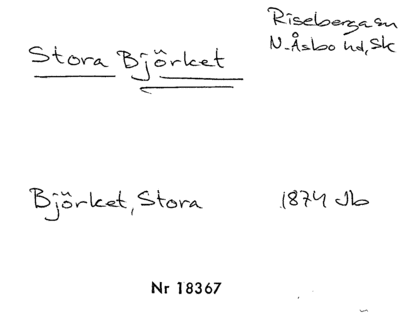 Riseberga sn
N-Åsbo hd, Sk
Stora Björket
Björket, Stora 1874 Jb
Nr 18367